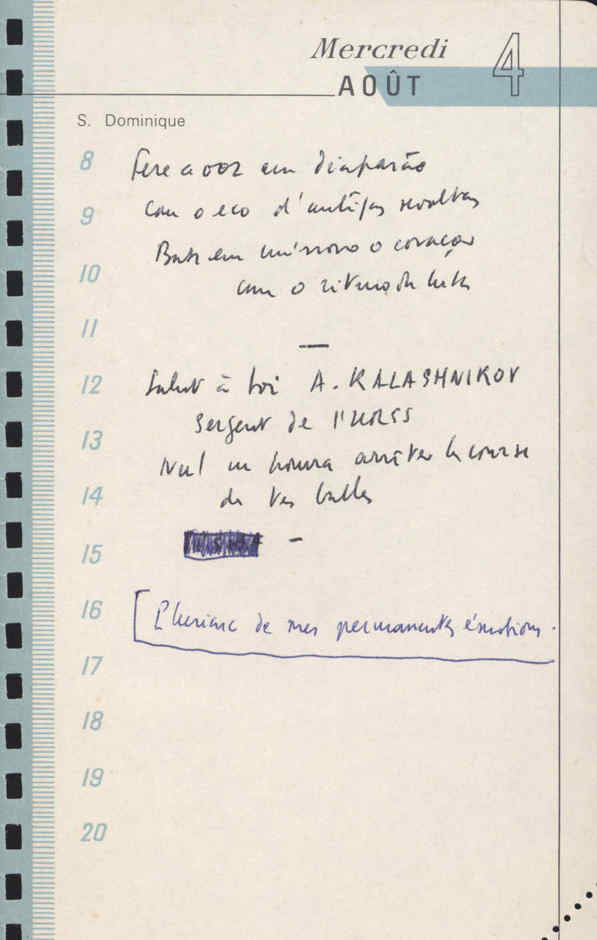 Mercredi 4
AOÛT
S. Dominique
8 Fere a voz em diapasão
9 Com o eco d'antigas revoltas
Bate em uníssono o coração
10 com o ritmo da luta
11
—
12 Salut à toi A. KALASHNIKOV
Sergent de l'URSS
13 Nul ne pourra arrêter la course
14 de tes balles
15 —
16 de mes permanentes émotions.
17
18
19
20